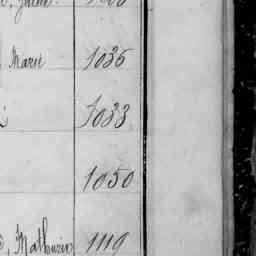 Marie 1036
1033
1050
Mathurin 1119